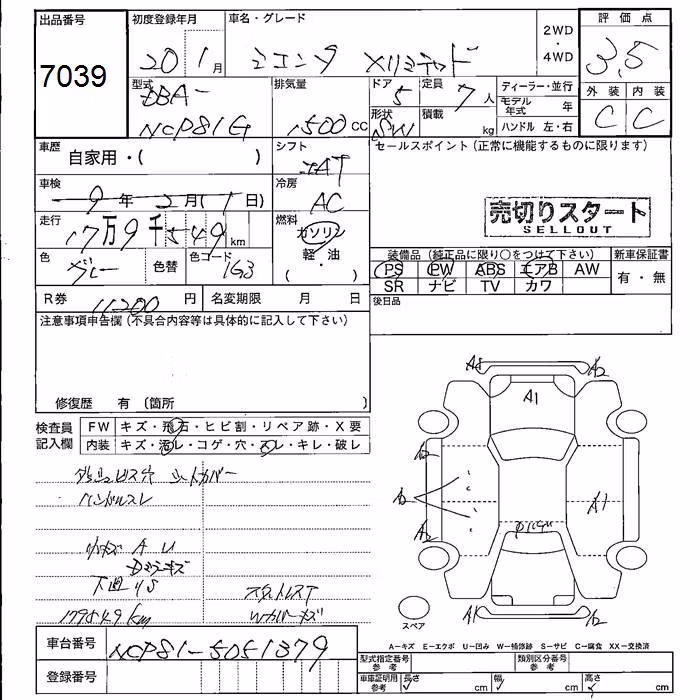 出品番号 初度登録年月 車名・グレード 2WD ・ 4WD 評価点
7039 20 1月 シエンタ Xリミテッド 3.5
型式 DBA- NCP81G 排気量 1500cc ドア 5 定員 7人 ディーラー・並行 外装 内装
形状 SW 積載 kg モデル年式 年 C C
ハンドル 左・右
車歴 自家用・( ) シフト AT セールスポイント(正常に機能するものに限ります)
車検 9年2月(1日) 冷房 AC
売切りスタート
SELLOUT
走行 17万9千549km 燃料 ガソリン
軽・油
( ・ )
色 グレー 色替 色コード 1G3
装備品(純正品に限り○をつけて下さい) 新車保証書
PS PW ABS エアB AW 有・無
SR ナビ TV カワ
R券 11200円 名変期限 月 日 後日品
注意事項申告欄(不具合内容等は具体的に記入して下さい)
修復歴 有(箇所 )
A2
A1
検査員記入欄 FW キズ・飛石・ヒビ割・リペア跡・X要
内装 キズ・汚レ・コゲ・穴・スレ・キレ・破レ
A2
ダッシュビス穴 シートカバー
ハンドルスレ
A1
A2
小キズ A U
下廻りS
179549km Wカバーキズ
A1
スペア
車台番号 NCP81-5051379
A-キズ E-エクボ U-凹み W-補修跡 S-サビ C-腐食 XX-交換済
登録番号
型式指定番号 参考 類別区分番号 参考
車庫証明用 参考 長さ cm 幅 cm 高さ cm